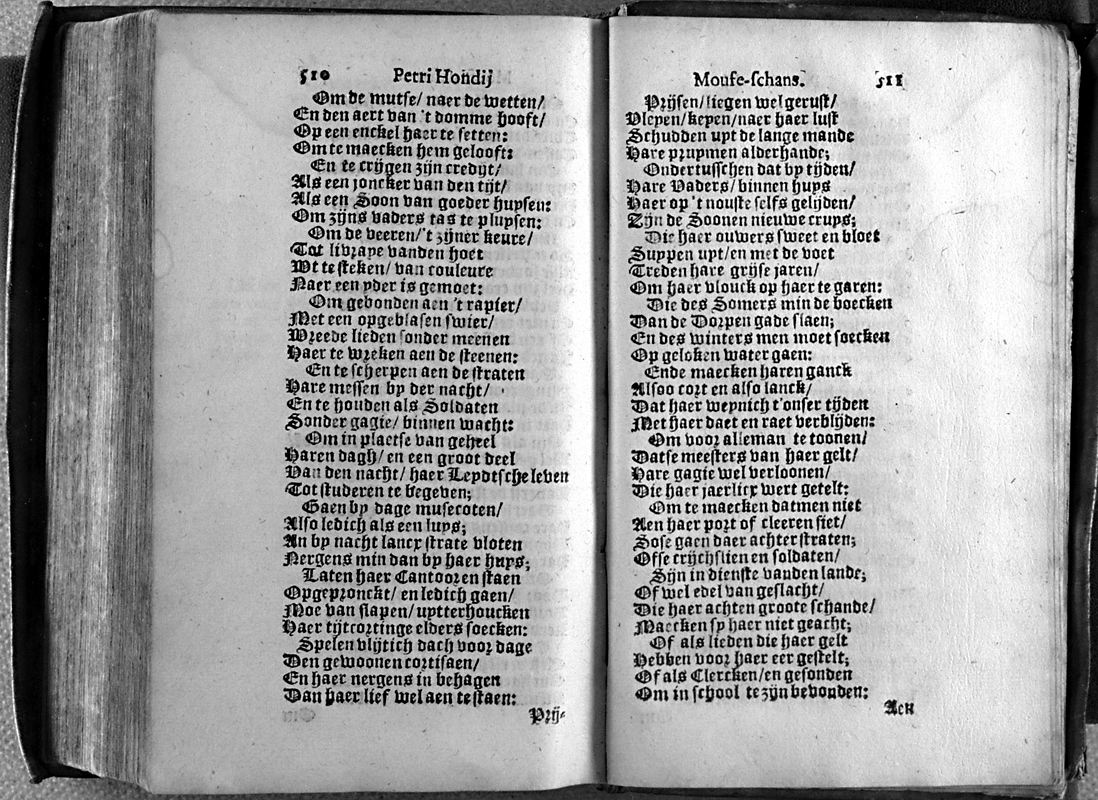 510 Petri Hondij
Om de mutse/ naer de wetten/
En den aert van 't domme hooft/
Op een enckel haer te setten:
Om te maecken hem gelooft:
En te crijgen zijn credijt/
Als een joncker van den tijt/
Als een Soon van goeder huysen:
Om zijns vaders tas te pluysen:
Om de veeren/ 't zijner keure/
Tot livraye vanden hoet
Wt te steken/ van couleure
Naer een yder is gemoet:
Om gebonden aen 't rapier/
Met een opgeblasen swier/
Wreede lieden sonder meenen
Haer te wreken aen de steenen:
En te scherpen aen de straten
Hare messen by der nacht/
En te houden als Soldaten
Sonder gagie/ binnen wacht:
Om in plaetse van geheel
Haren dagh/ en een groot deel
Van den nacht/ haer Leydtsche leven
Tot studeren te begeven;
Gaen by dage musecoten/
Also ledich als een luys;
An by nacht lancx strate vloten
Nergens min dan by haer huys;
Laten haer Cantooren staen
Opgepronckt/ en ledich gaen/
Moe van slapen/ uytterhoucken
Haer tijtcortinge elders soecken:
Spelen vlijtich dach voor dage
Den gewoonen cortisaen/
En haer nergens in behagen
Dan haer lief wel aen te staen:
Prij-
Mouse-schans. 511
Prijsen/ liegen wel gerust/
Vleyen/ keyen/ naer haer lust
Schudden uyt de lange mande
Hare pruymen alderhande;
Ondertusschen dat by tijden/
Hare Vaders/ binnen huys
Haer op 't nouste selfs gelijden/
Zijn de Soonen nieuwe cruys;
Die haer ouwers sweet en bloet
Suypen uyt/ en met de voet
Treden hare grijse jaren/
Om haer vlouck op haer te garen:
Die des Somers min de boecken
Dan de Dorpen gade slaen;
En des winters men moet soecken
Op geloken water gaen:
Ende maecken haren ganck
Alsoo cort en also lanck/
Dat haer weynich t'onser tijden
Met haer daet en raet verblijden:
Om voor alleman te toonen/
Datse meesters van haer gelt/
Hare gagie wel verloonen/
Die haer jaerlicx wert getelt:
Om te maecken datmen niet
Aen haer port of cleeren siet/
Sose gaen daer achter straten;
Ofse crijchslien en soldaten/
Sijn in dienste vanden lande;
Of wel edel van geslacht/
Die haer achten groote schande/
Maecken sy haer niet geacht;
Of als lieden die haer gelt
Hebben voor haer eer gestelt;
Of als Clercken/ en gesonden
Om in school te zijn bevonden:
Aen